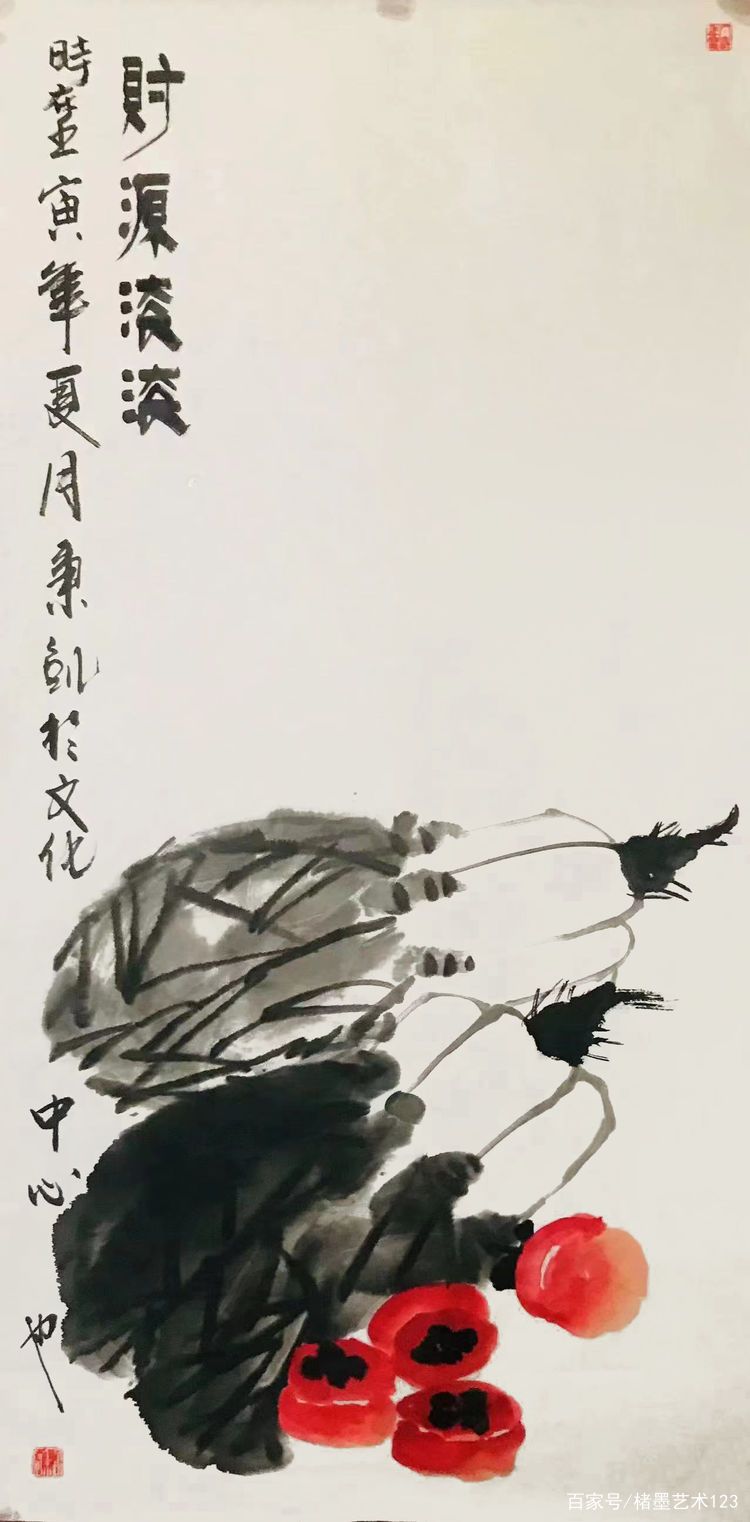 財源滚滚
時在壬寅年夏月秉凱於文化
中心也
百家号/楮墨艺术123